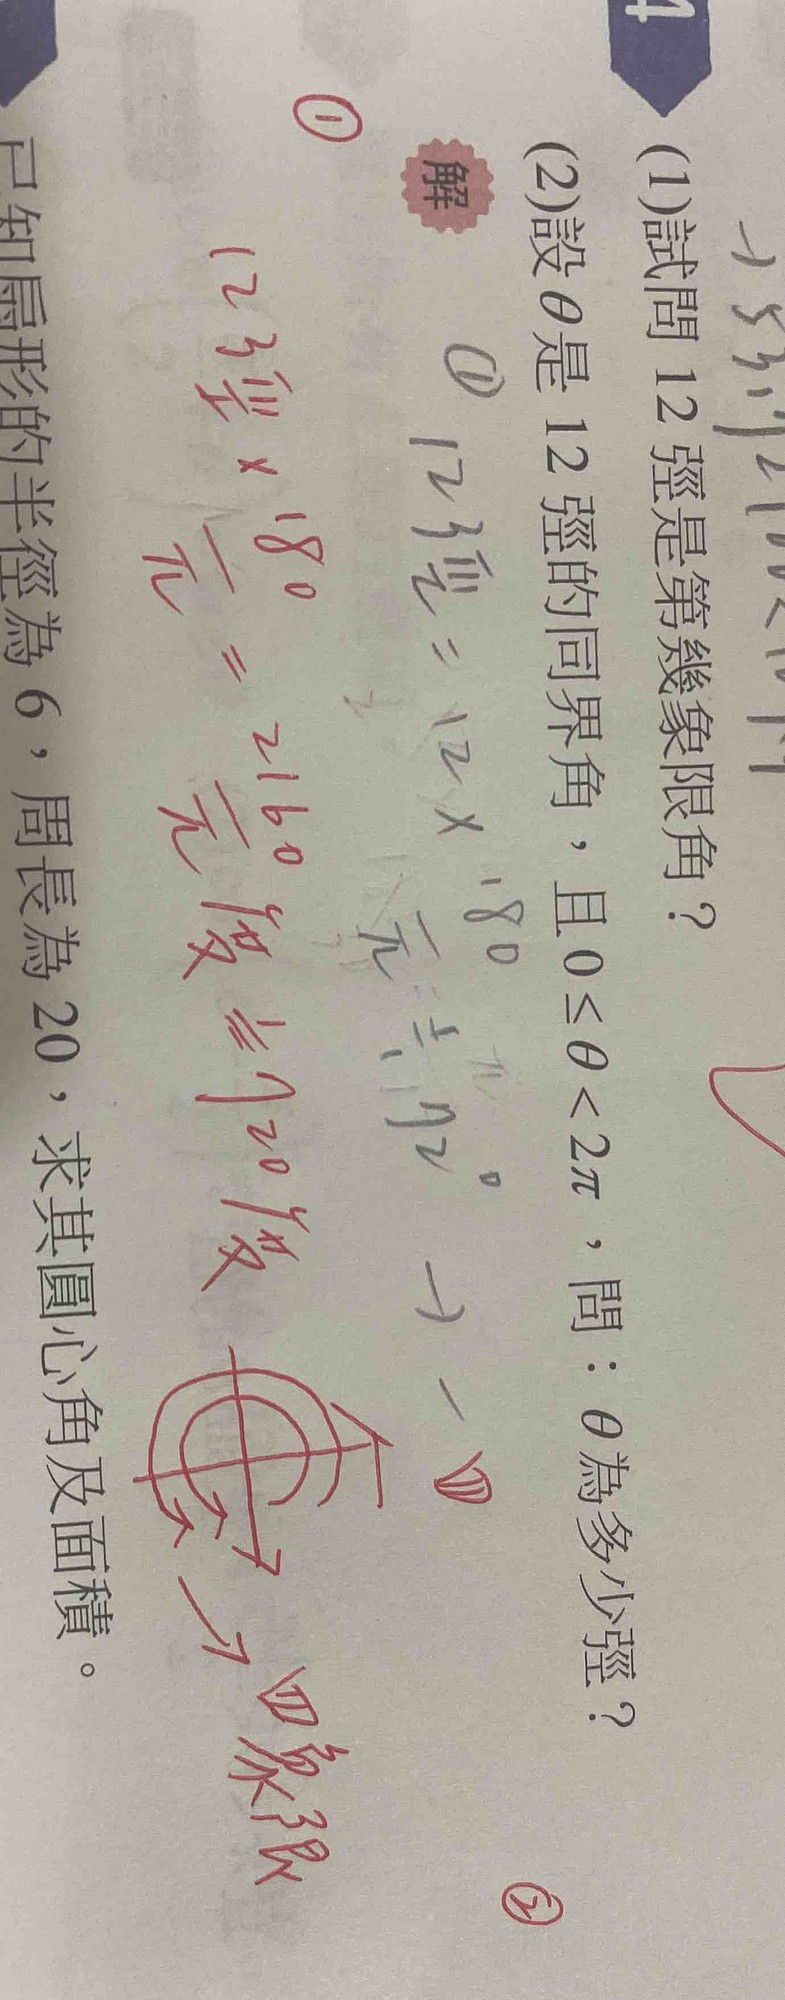 4
(1)試問 12 弳是第幾象限角?
(2)設θ是 12 弳的同界角,且 0≤θ<2π,問:θ為多少弳?
②
解
① 12弳= 12× 180/π
72° → 一 四
①
12弳× 180/π = 2160/π 度 ≒720度 → 四象限
已知扇形的半徑為 6,周長為 20,求其圓心角及面積。